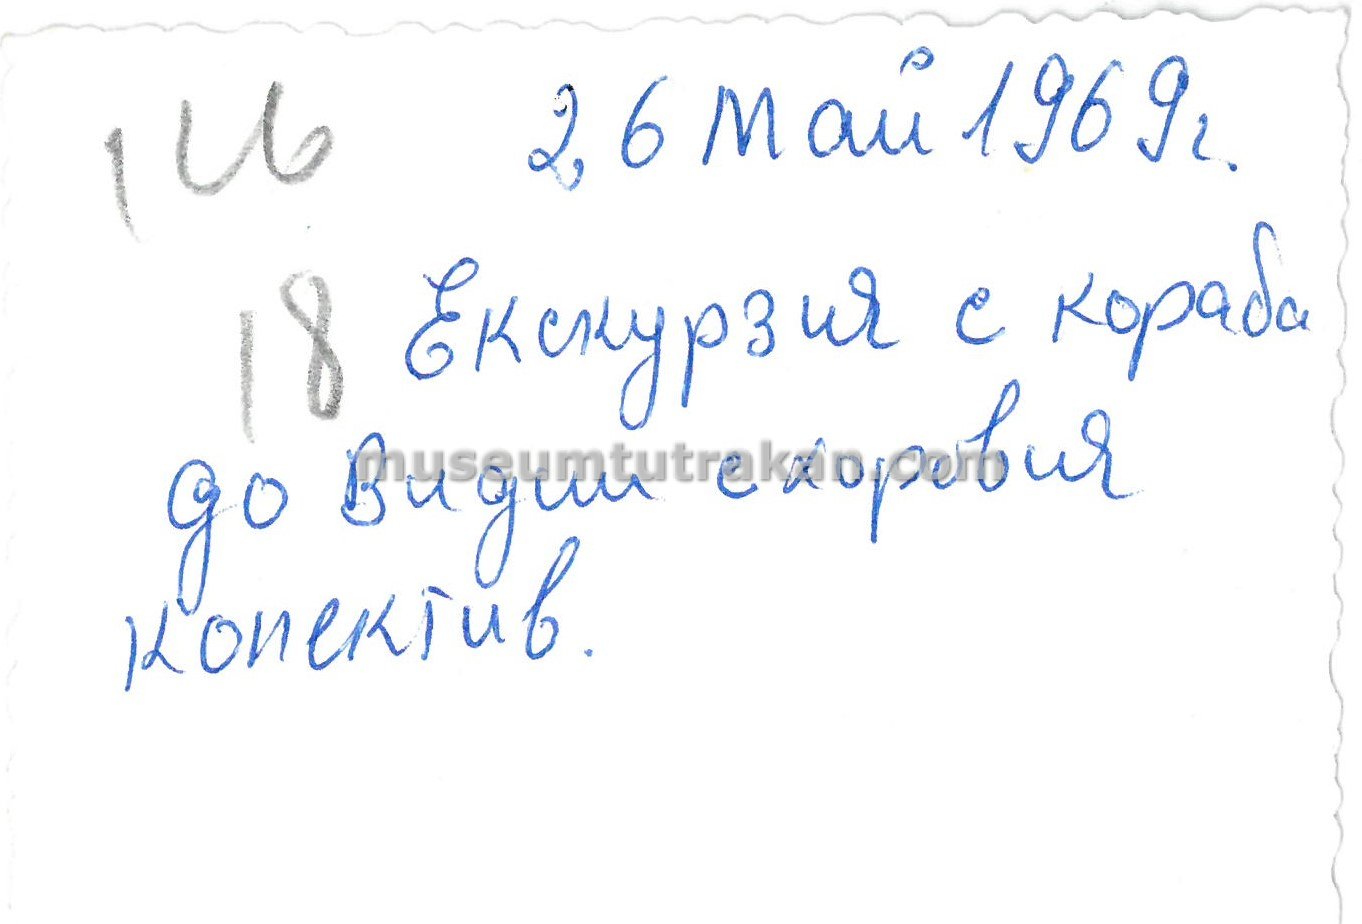 26 Май 1969г.
146
18 Екскурзия с кораба
до Видин с хоровия
museumtutrakan.com
колектив.